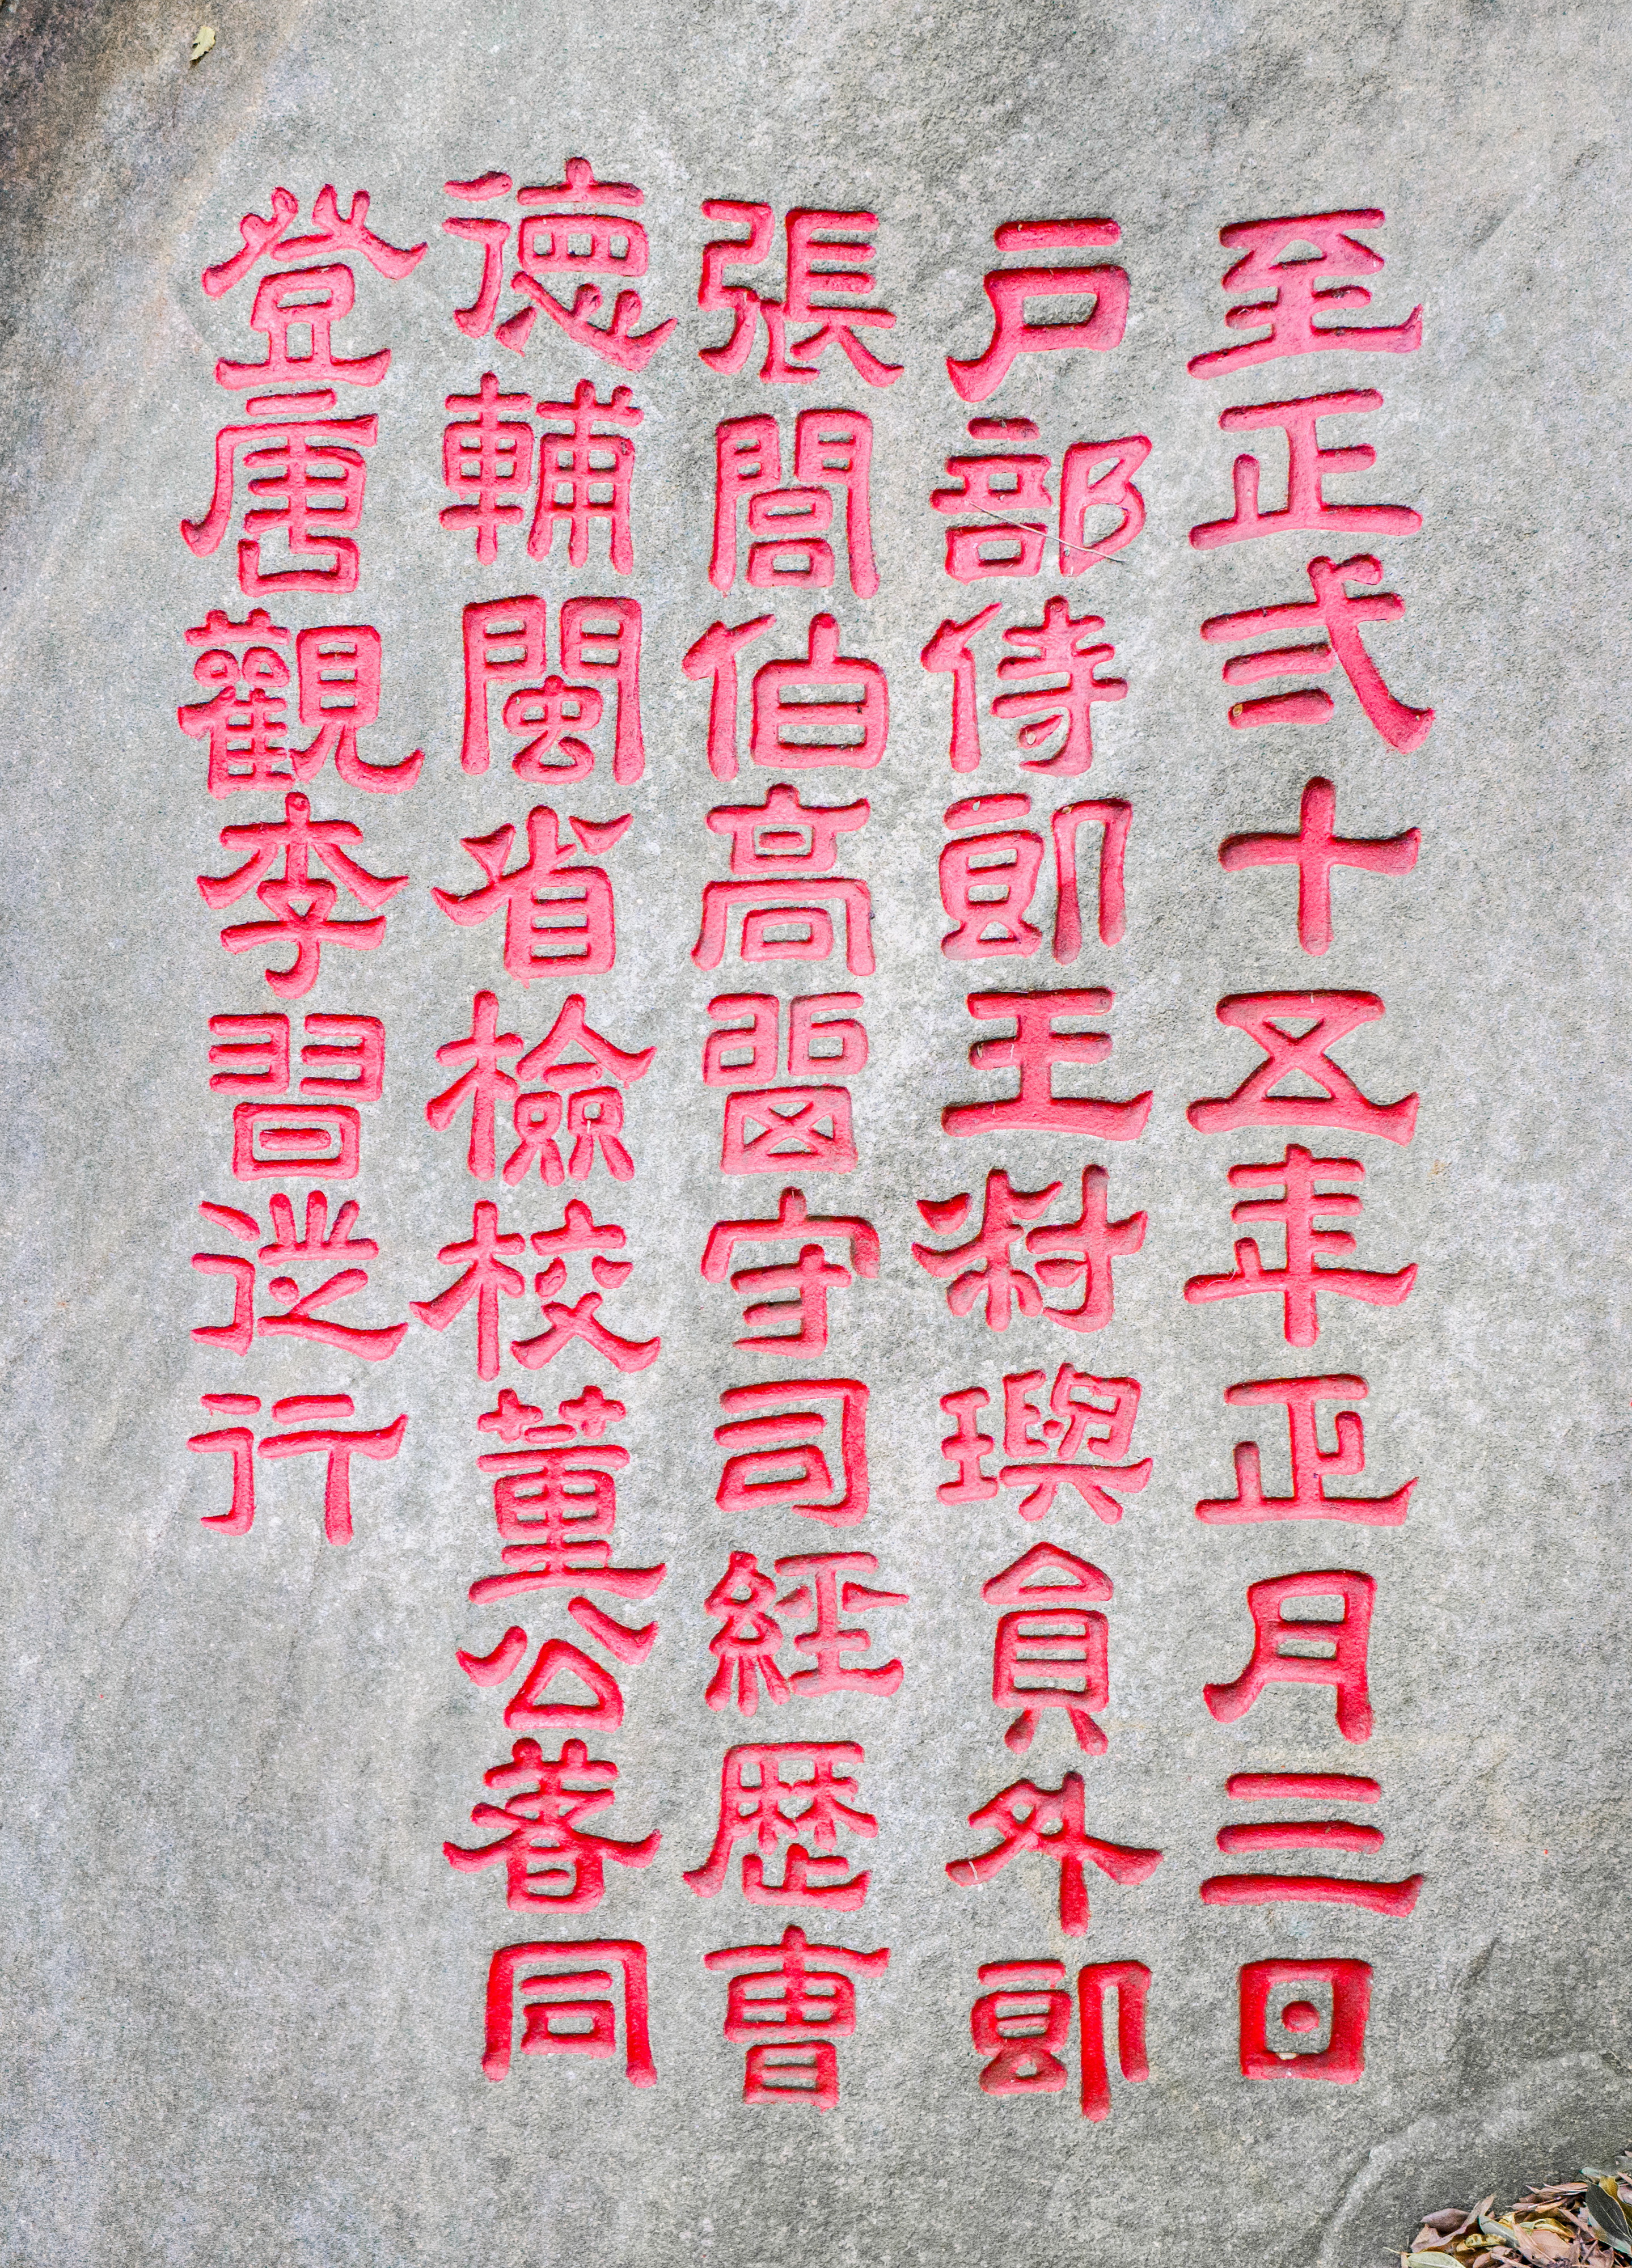 至正弍十五年正月三日
戶部侍郎王璵員外郎
張閭伯高留守司經歴曹
德輔閩省檢校董公著同
登唐觀李習從行